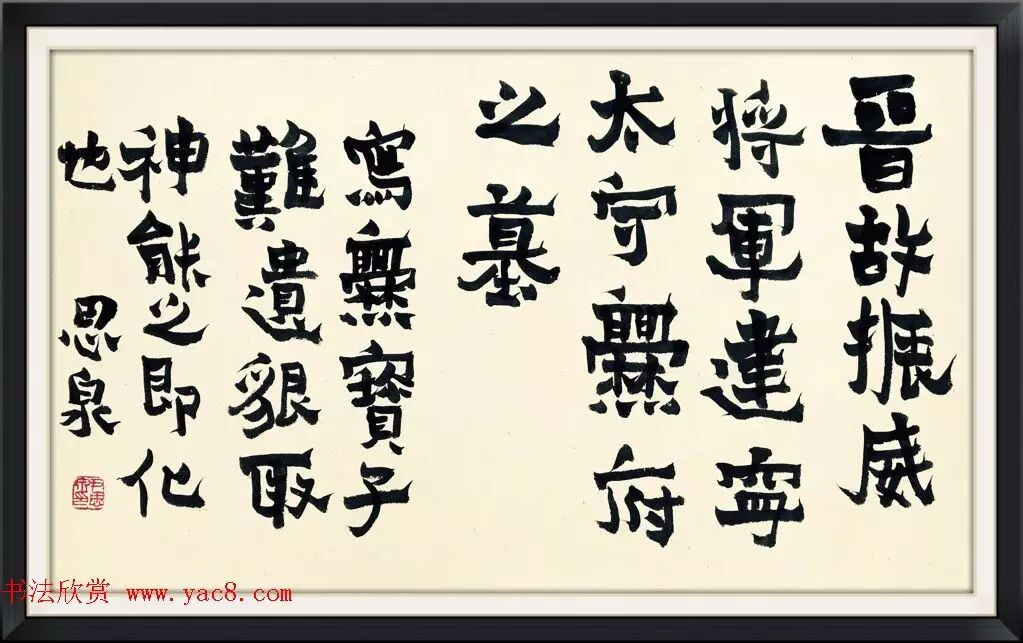 晋故振威
将軍建寧
太守爨府
之墓
寫爨寶子
難遺貌取
神能之即化
也 思泉
书法欣赏 www.yac8.com